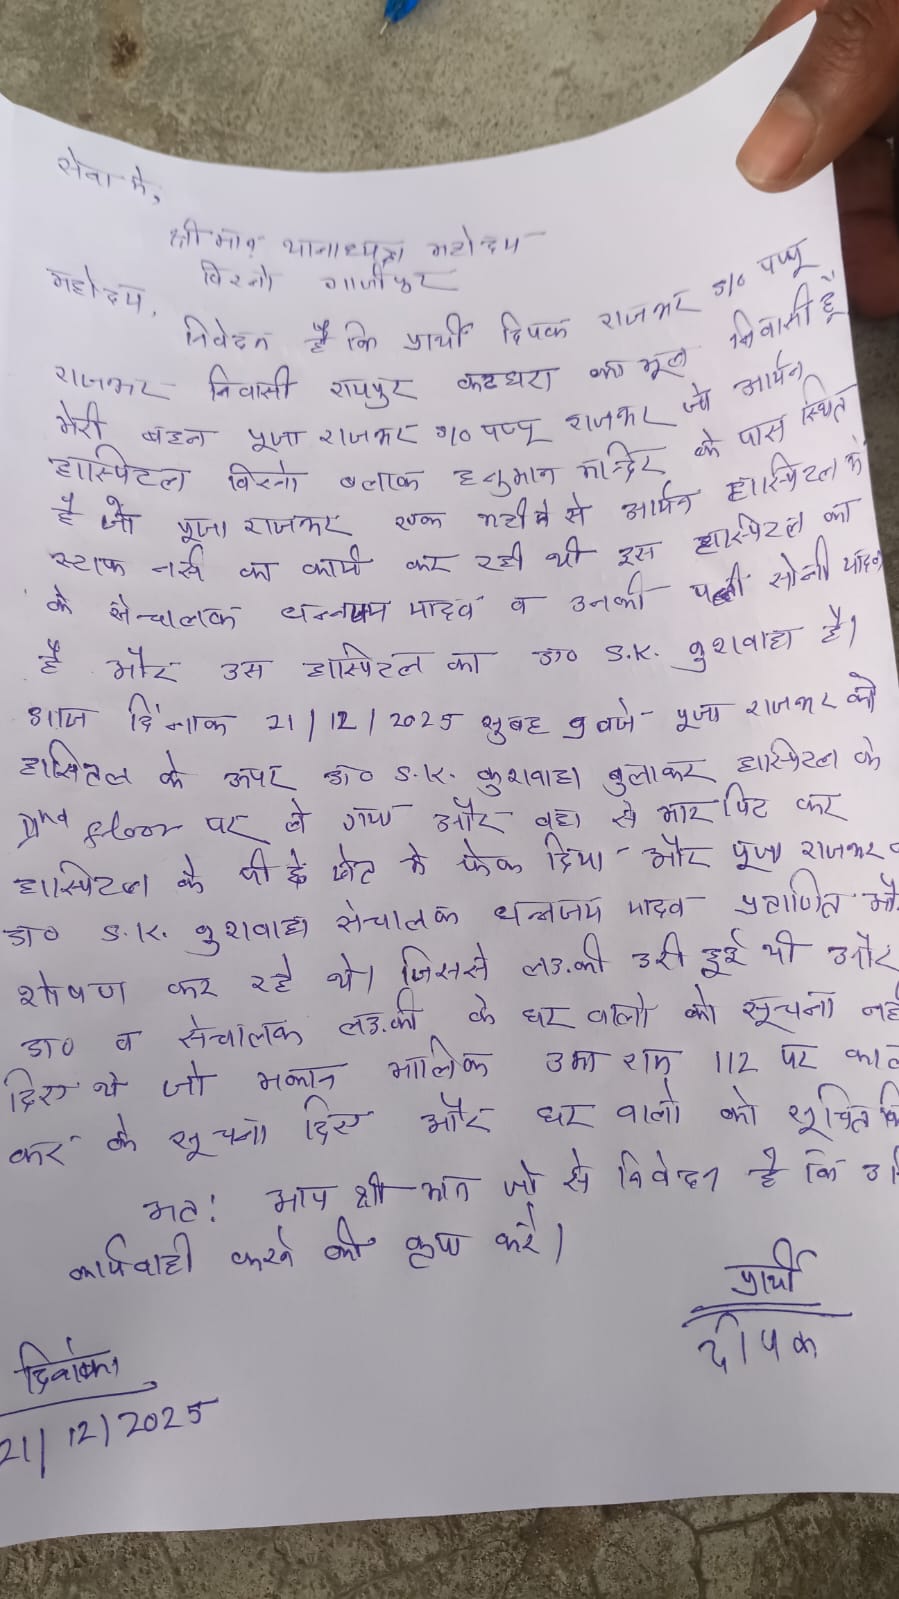 सेवा मे,
श्रीमान् थानाध्यक्ष महोदय
विरनो गाजीपुर
महोदय,
निवेदन है कि प्रार्थी दिपक राजभर S/० पप्पू
राजभर निवासी रायपुर कटघरा का मूल निवासी हूँ
मेरी बहन पूजा राजभर D/० पप्पू राजभर जो आर्यन
हास्पिटल विरनो ब्लाक हनुमान मन्दिर के पास स्थित
है जो पूजा राजभर एक महीने से आर्यन हास्पिटल के
स्टाफ नर्स का कार्य कर रही थी इस हास्पिटल का
के संचालक धन्नजय यादव व उनकी पत्नी सोनी यादव
है और उस हास्पिटल का डा० S.K. कुशवाहा है।
आज दिंनाक 21/12/2025 सुबह 9 वजे पूजा राजभर को
हास्पितल के ऊपर डा० S.K. कुशवाहा बुलाकर हास्पिटल के
floor पर ले गया और वहा से मार पिट कर
हास्पिटल के पीछे खेत मे फेक दिया और पूजा राजभर
डा० S.K. कुशवाहा संचालक धन्नजय यादव प्रताणित
शोषण कर रहे थे। जिससे लड़की डरी हुई थी और
डा० व संचालक लड़की के घर वालो को सूचना
दिए थे जो मकान मालिक उमा राम 112 पर
कर के सूचना दिए और घर वालो को सूचित
अत: आप श्रीमान जी से निवेदन है कि
कार्यवाही करने की कृपा करे।
प्रार्थी
दीपक
दिनांक
21/12/2025